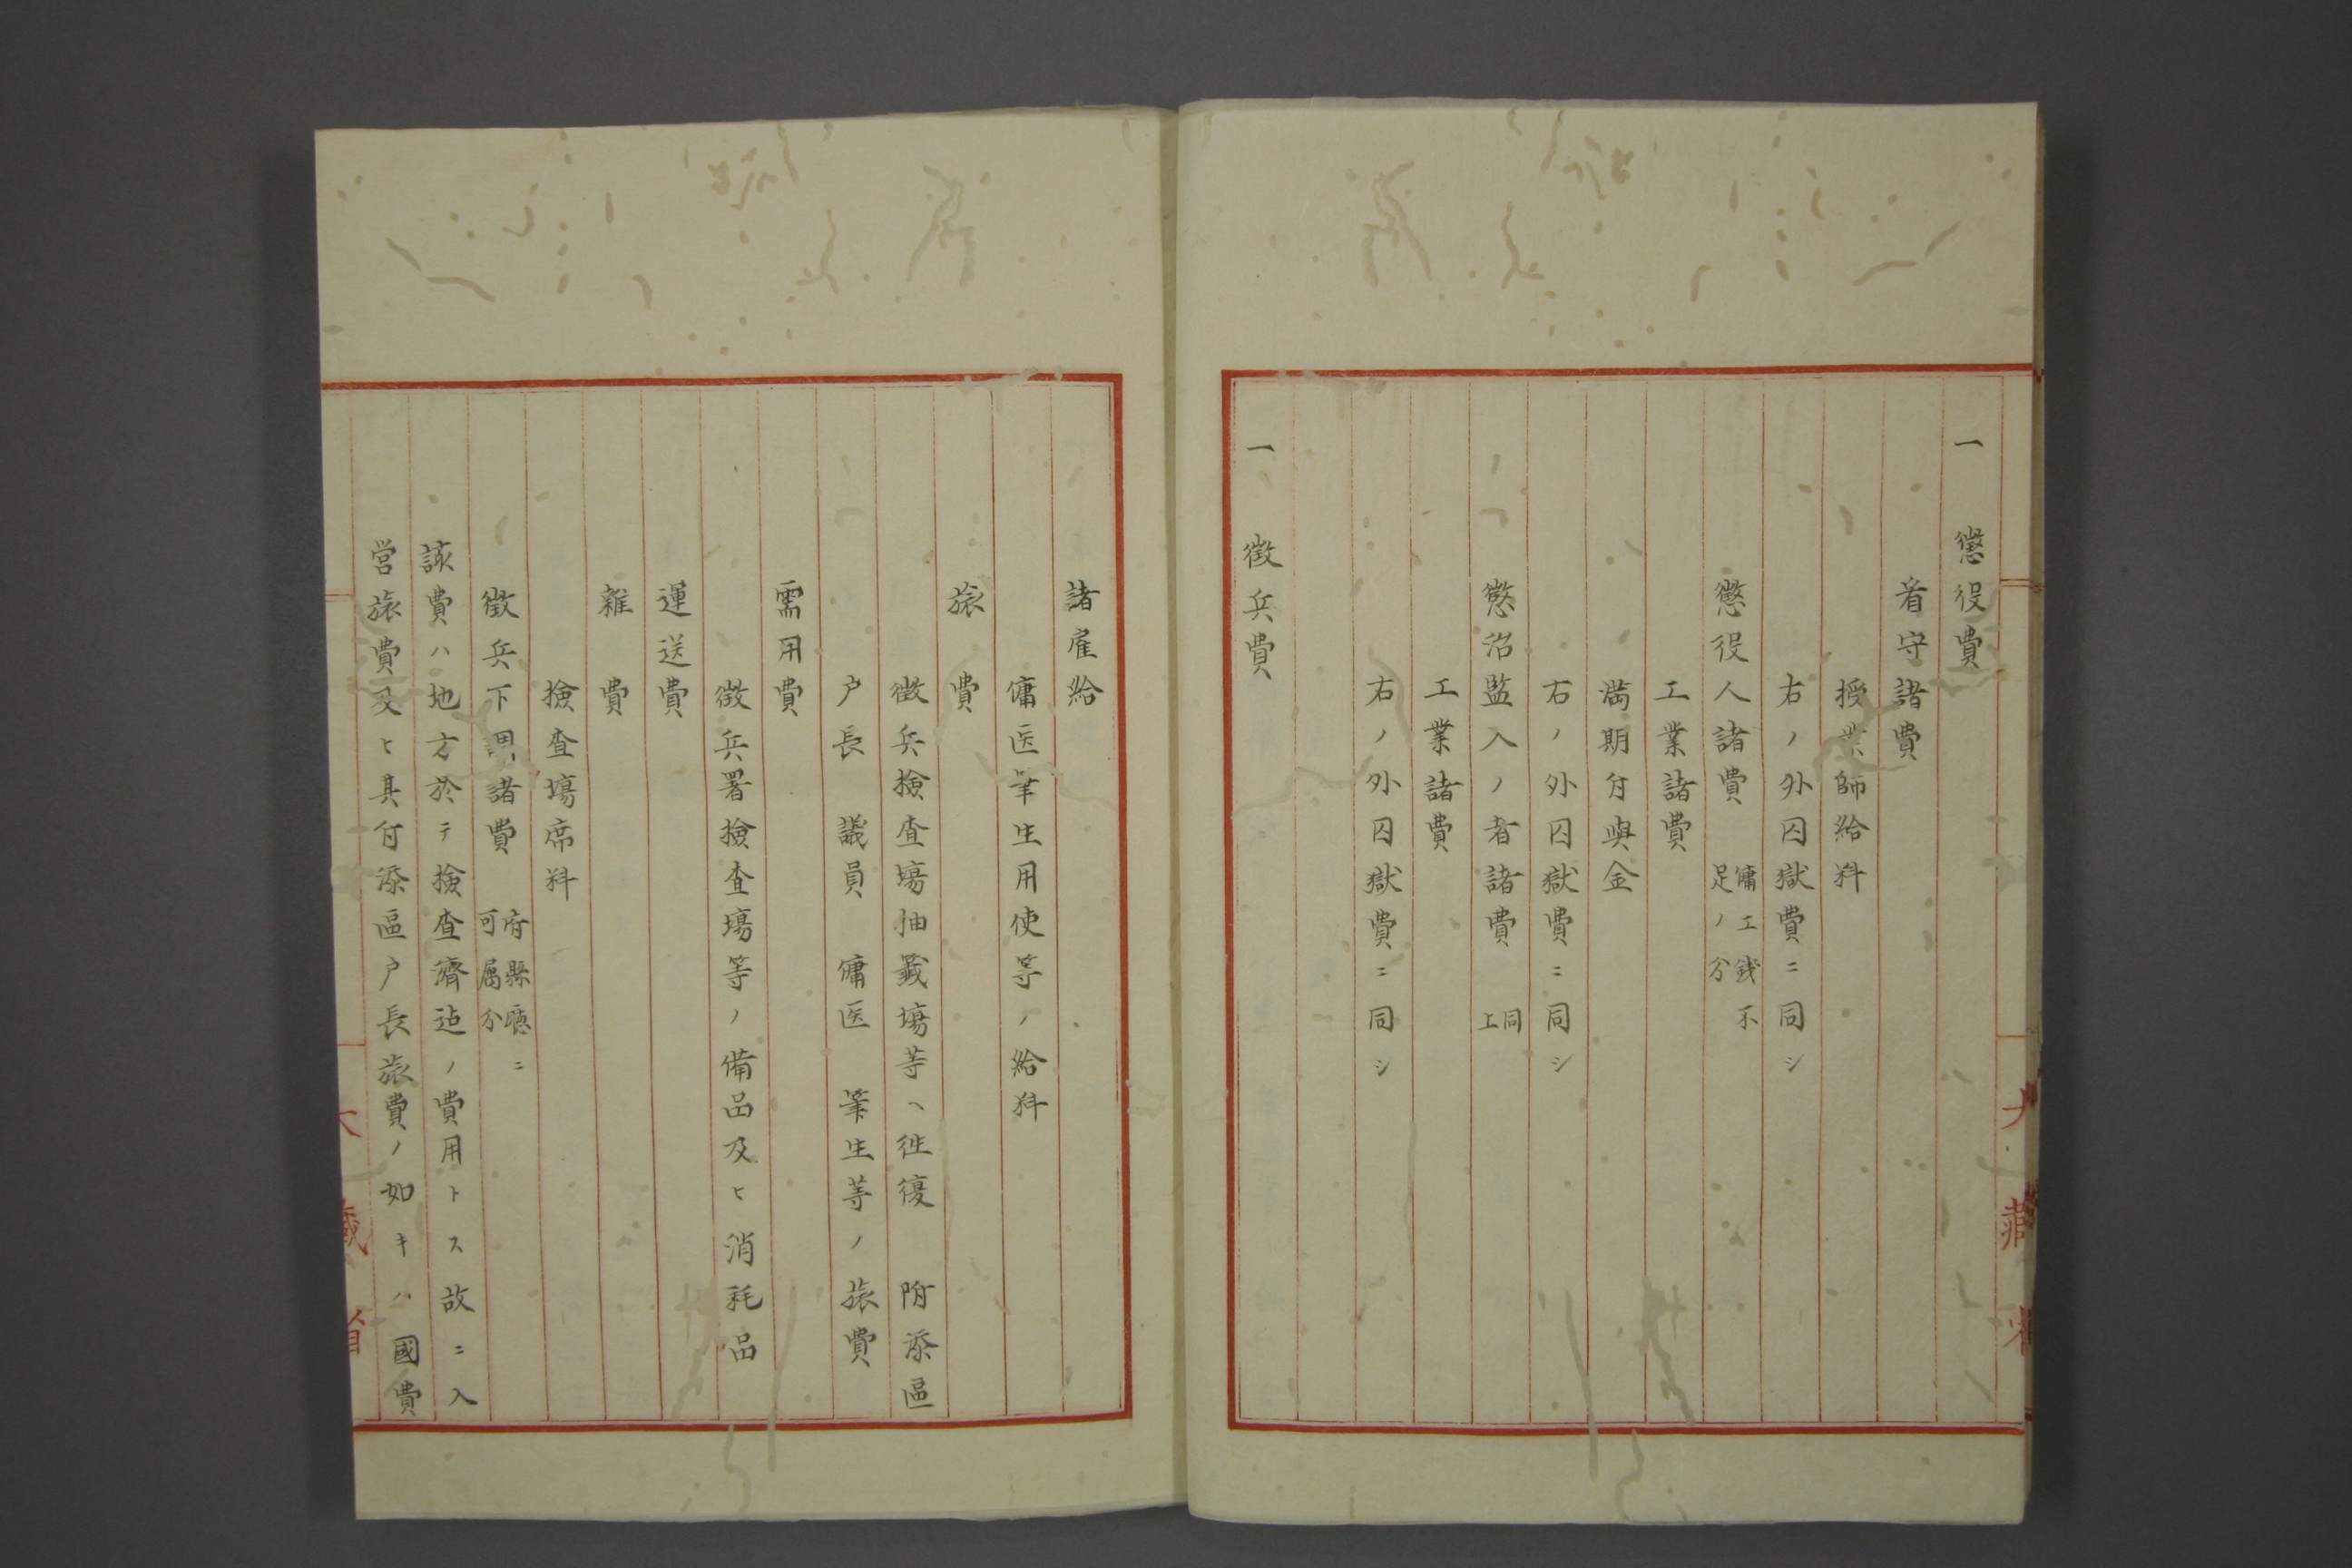 一 懲役費
看守諸費
授業師給料
右ノ外囚獄費ニ同シ
懲役人諸費 傭工銭不足ノ分
工業諸費
満期付與金
右ノ外囚獄費ニ同シ
懲治監入ノ者諸費 同上
工業諸費
右ノ外囚獄費ニ同シ
一 徴兵費
諸雇給
傭医筆生用使等ノ給料
旅費
徴兵検査場抽籤場等ヘ往復 附添區
戸長 議員 傭医 筆生等ノ旅費
需用費
徴兵署検査場等ノ備品及ヒ消耗品
運送費
雑費
検査場席料
徴兵下調諸費 府縣廳ニ可属分
該費ハ地方於テ検査濟迠ノ費用トス故ニ入
営旅費及ヒ其付添區戸長旅費ノ如キハ國費
大藏省